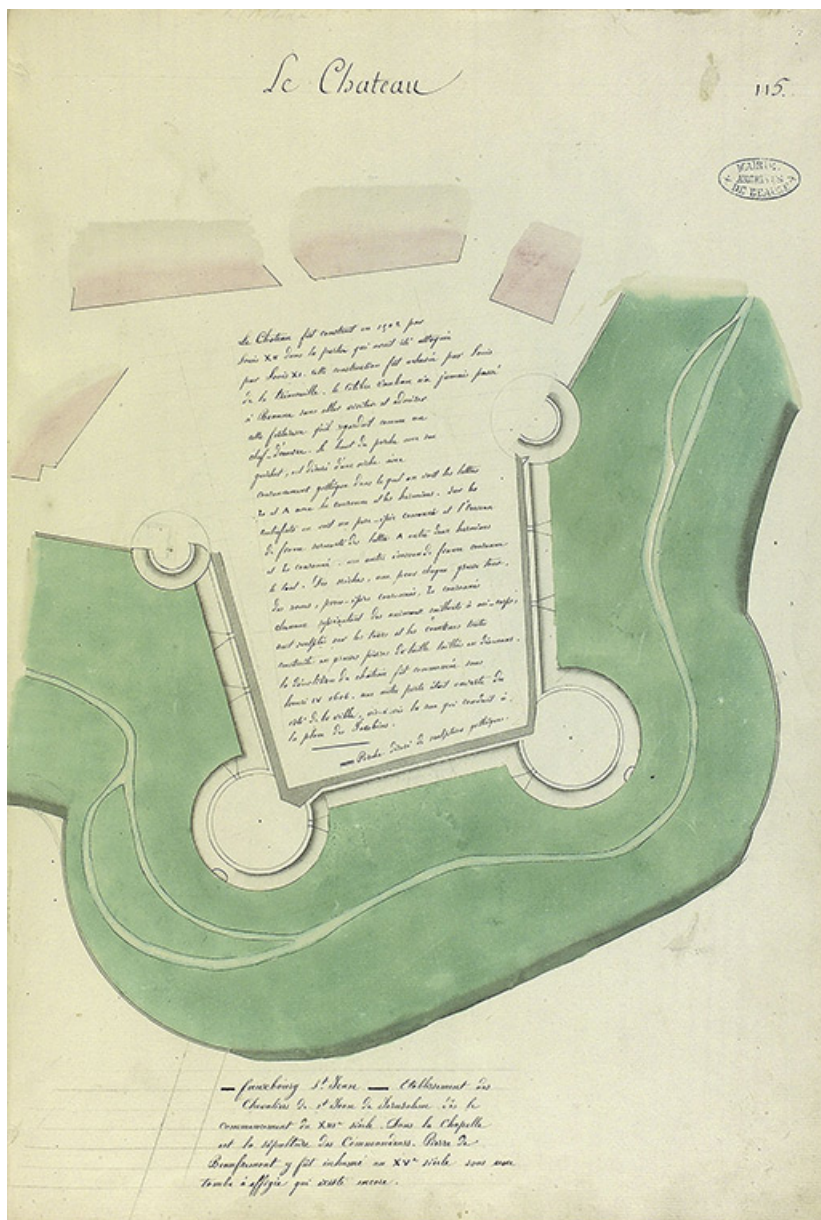 Le Chateau
115.
MAIRIE
ARCHIVES
DE BEAUNE
Le Chateau fût construit en 1502 par
Louis XII dans la partie qui avoit été attaquée
par Louis XI. cette construction fût achevée par Louis
de la Trimouille. le célèbre Vauban n'a jamais passé
à Beaune sans aller visiter et admirer
cette forteresse qu'il regardoit comme un
chef-d'œuvre. le haut du porche sur son
guichet, est décoré d'une niche avec
couronnement gothique dans lequel on voit les lettres
L et A avec la couronne et les hermines. Sur les
on voit un porc-épic couronné et l'écusson
de france surmonté des lettres A entre deux hermines
et la couronne. un autre écusson de france couronne
le tout. Des niches, une pour chaque grosse tour,
des roses, porcs-épics couronnés, L couronnés
animaux saillants à mi-corps,
sont sculptés sur les tours et les courtines toutes
construites en grosses pierres de taille taillées en diamans.
la démolition du château fût commencée sous
henri IV 1602. une autre porte était ouverte du
côté de la ville, vis-à-vis la rue qui conduit à
la place des Jacobins.
— Porche décoré de sculptures gothiques.
— fauxbourg St Jean — Etablissement des
Chevaliers de St Jean de Jerusalem dès le
commencement du siècle. Dans la Chapelle
est la sépulture des Commandeurs. Pierre de
Beaufremont y fût inhumé au XVe siècle sous une
tombe à effigie qui existe encore.